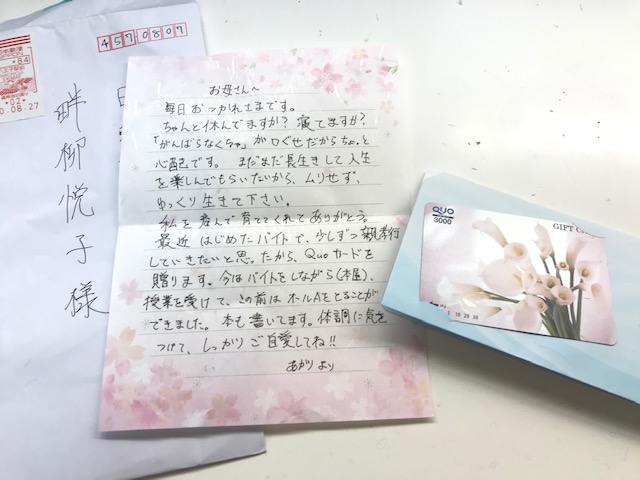 84
.02
0.08.27
4570807
畔柳悦子様
お母さんへ
毎日おつかれさまです。
ちゃんと休んでますか?寝てますか?
「がんばらなくちゃ」が口ぐせだからちょっと
心配です。まだまだ長生きして人生
を楽しんでもらいたいから、ムリせず、
ゆっくり生きて下さい。
私を産んで育ててくれてありがとう。
最近はじめたバイトで、少しずつ親孝行
していきたいと思ったから、Quoカードを
贈ります。今はバイトをしながら(本屋)、
授業を受けて、この前はオールAをとることが
できました。本も書いてます。体調に気を
つけて、しっかりご自愛してね!!
あかりより
QUO
3000
GIFT C
10 29 30